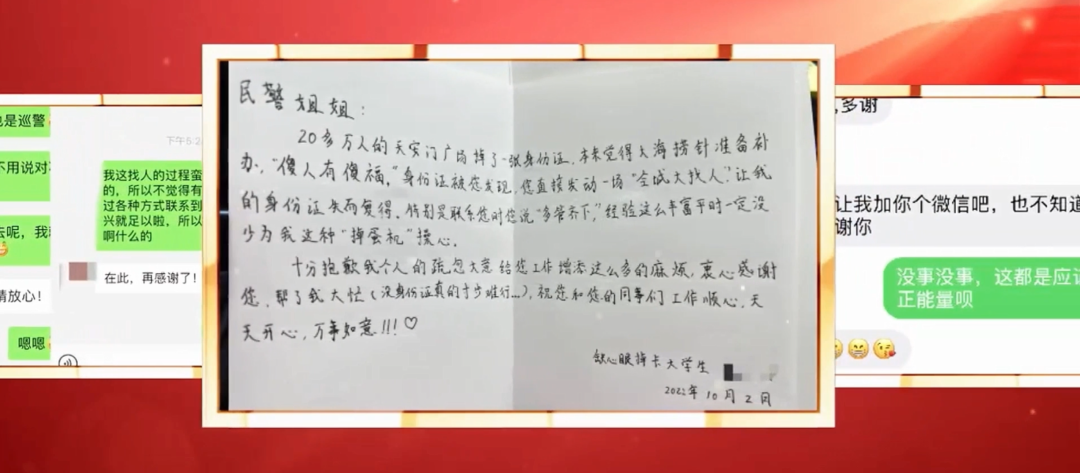 也是巡警
不用说对不
去呢,我
情放心!
嗯嗯
下午5:2
我这找人的过程蛮
的,所以不觉得有
过各种方式联系到
兴就足以啦,所以
啊什么的
在此,再感谢了!
民警姐姐:
20多万人的天安门广场掉了一张身份证,本来觉得大海捞针准备补
办,“傻人有傻福”,身份证被您发现,您直接发动一场“全城大找人”,让我
的身份证失而复得。特别是联系您时您说“多管齐下,”经验这么丰富平时一定没
少为我这种“掉蛋机”操心。
十分抱歉我个人的疏忽大意给您工作增添这么多的麻烦,衷心感谢
您,帮了我大忙(没身份证真的寸步难行...),祝您和您的同事们工作顺心,天
天开心,万事如意!!!♡
缺心眼掉卡大学生
2022年10月2日
,多谢
让我加你个微信吧,也不知道
谢你
没事没事,这都是应该
正能量呗